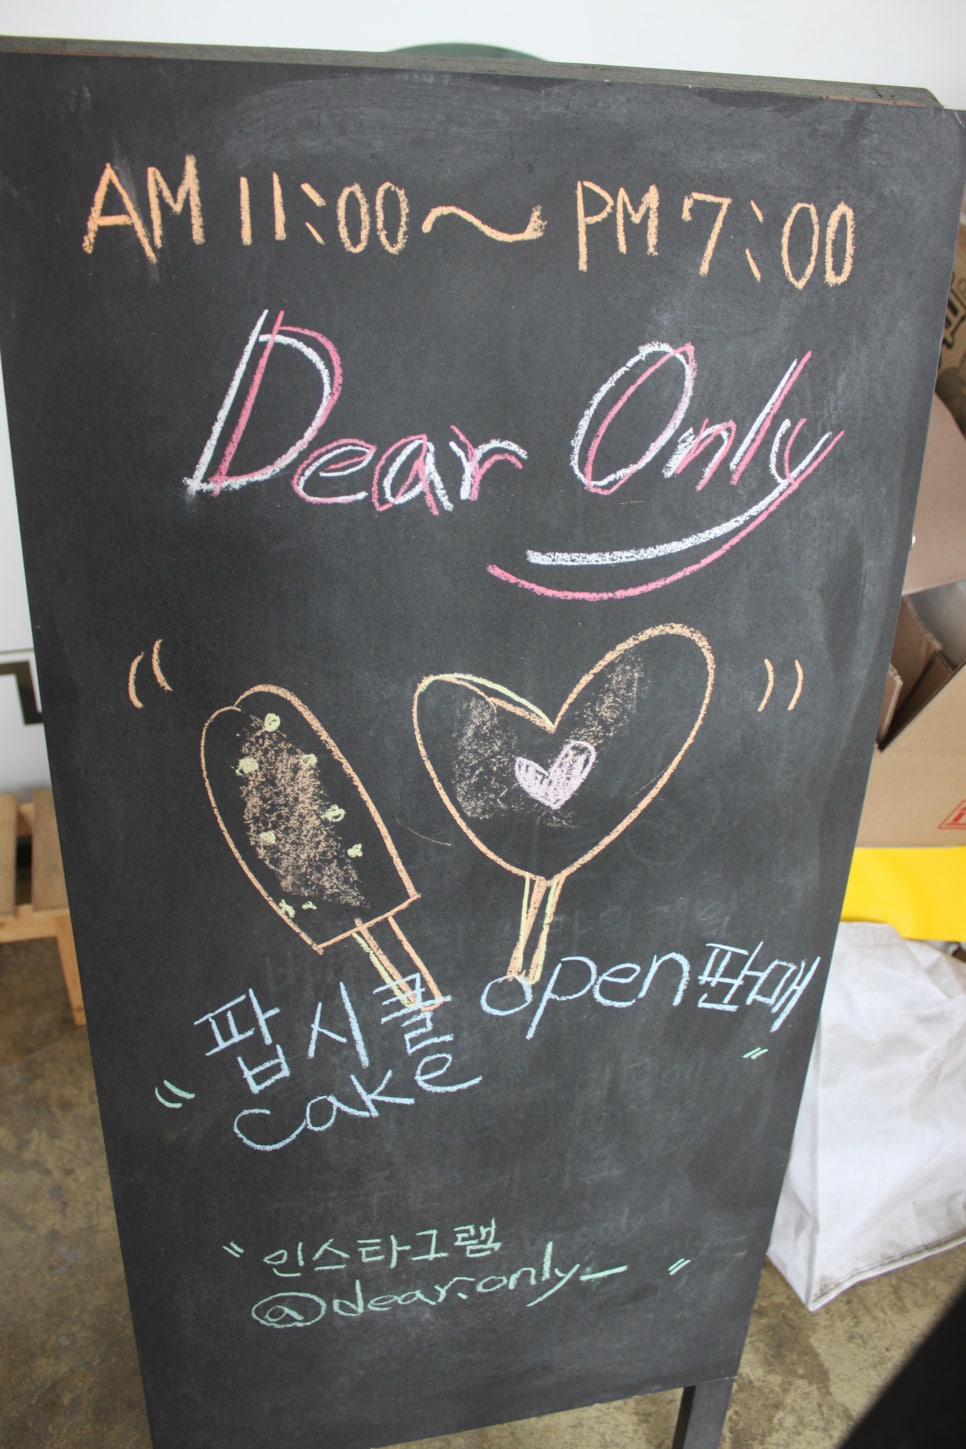 AM 11:00 ~ PM 7:00
Dear Only
팝시클 open 판매
cake
"인스타그램
@dear.only_"